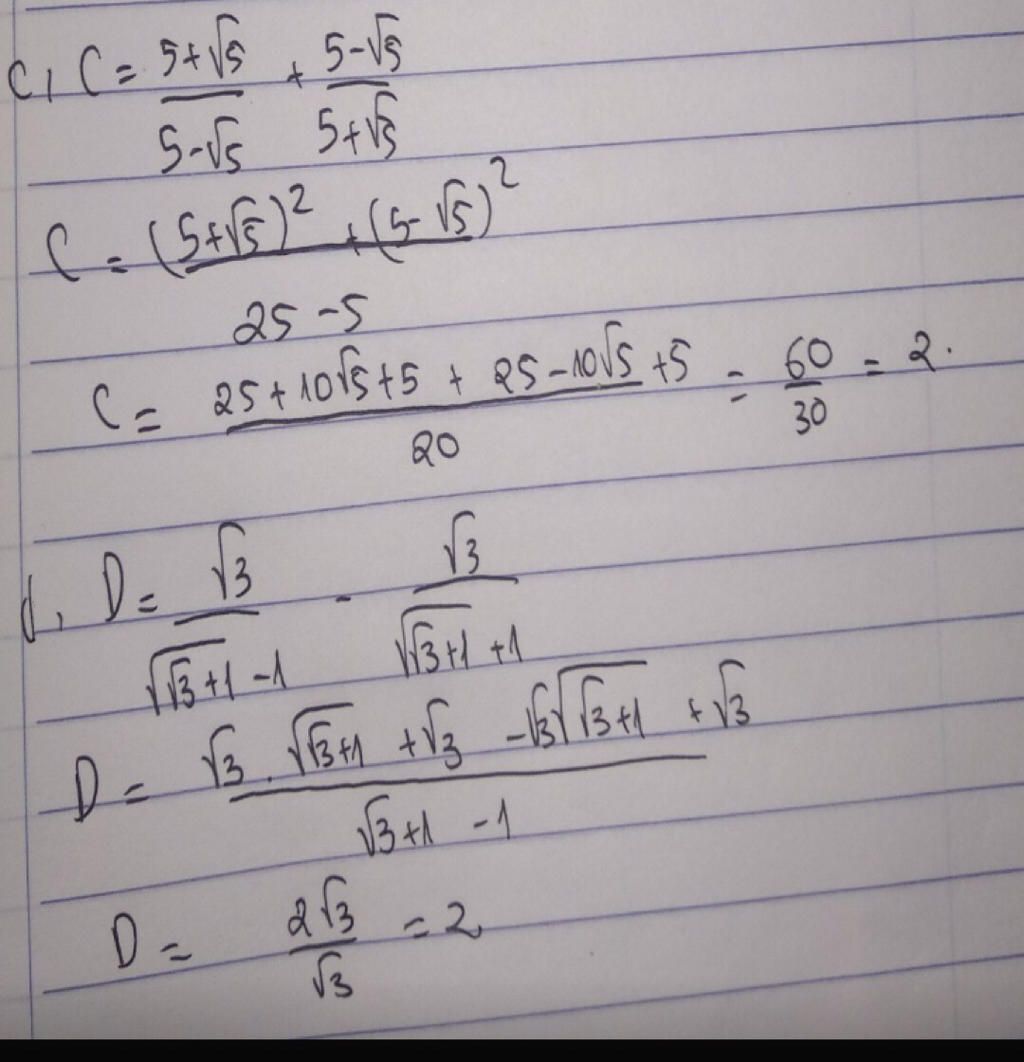 c, C = \frac{5+√5}{5-√5} + \frac{5-√5}{5+√5}
C = \frac{(5+√5)² + (5-√5)²}{25-5}
C = \frac{25+10√5+5 + 25-10√5+5}{20} = \frac{60}{30} = 2.
d, D = \frac{√3}{\sqrt{√3+1}-1} - \frac{√3}{\sqrt{√3+1}+1}
D = \frac{√3.\sqrt{√3+1} +√3 -√3\sqrt{√3+1} +√3}{√3+1-1}
D = \frac{2√3}{√3} = 2